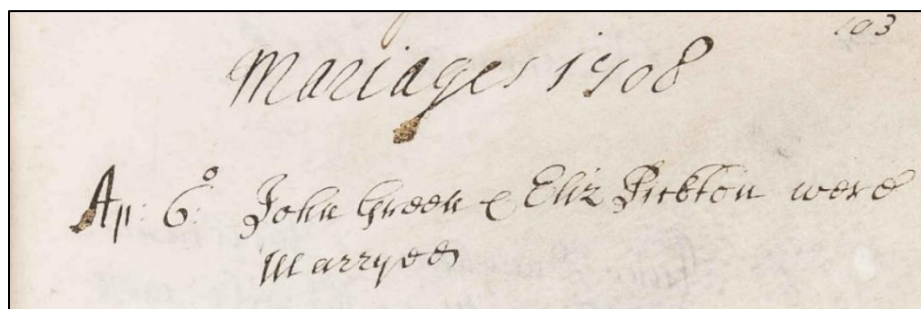 103
Mariages 1708
Ap: 6:° John Green & Eliz Pickton were
Marryed